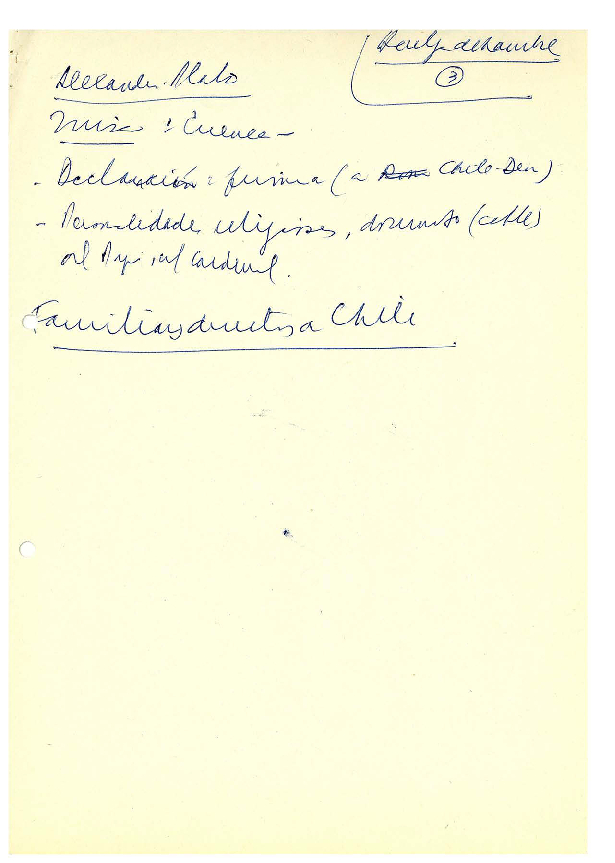 Huelga de hambre
3
Alexander
Misa : Cuenca -
- Declaración : firma (a Chile-Dem)
- Personalidades religiosas, documento (cable)
al Cardenal.
Familiares directos a Chile